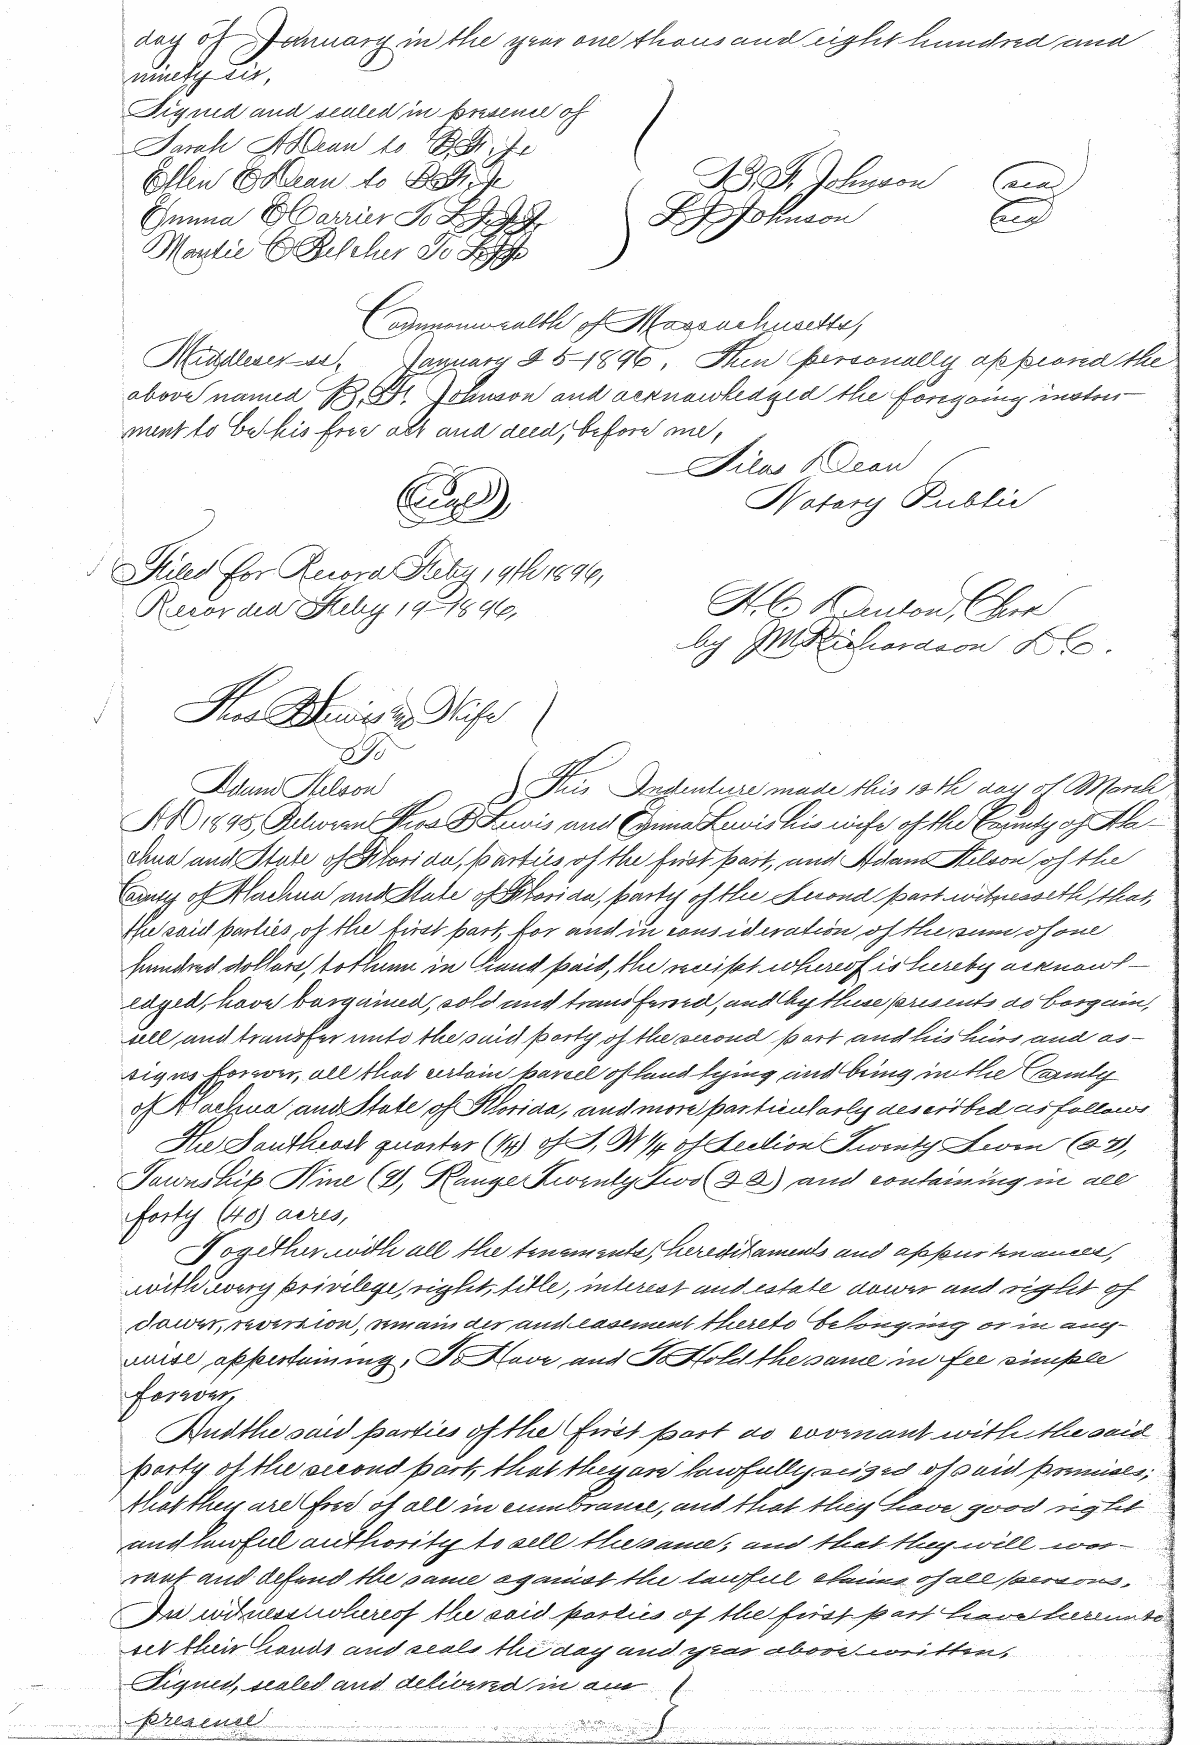 day of January in the year one thousand eight hundred and
ninety six,
Signed and sealed in presence of
Sarah A Dean to B. F. J.
Ellen E Dean to B. F. J.
Emma E Carrier To L J J J.
Mantie C Belcher To L J J
B. F. Johnson (seal)
L J Johnson (seal)
Commonwealth of Massachusetts,
Middlesex ss, January 25-1896. Then personally appeared the
above named B. F. Johnson and acknowledged the foregoing instru-
ment to be his free act and deed, before me,
Silas Dean
Notary Public
(Seal)
Filed for Record Feby 19th 1896,
Recorded Feby 19-1896,
H. C. Denton, Clerk
by J M Richardson D. C.
Thos B Lewis and Wife
To
Adam Nelson ) This Indenture made this 12th day of March
A D 1895, Between Thos B Lewis and Emma Lewis his wife of the County of Ala-
chua and State of Florida, parties of the first part, and Adam Nelson of the
County of Alachua and State of Florida, party of the Second part witnesseth, that,
the said parties, of the first part, for and in consideration of the sum of one
hundred dollars, to them in hand paid, the receipt whereof is hereby acknowl-
edged, have bargained, sold and transferred, and by these presents do bargain,
sell, and transfer unto the said party of the second part and his heirs and as-
signs forever, all that certain parcel of land lying and being in the County
of Alachua and State of Florida, and more particularly described as follows
The Southeast quarter (1/4) of S, W 1/4 of Section Twenty Seven (27),
Township Nine (9), Range Twenty Two (22) and containing in all
forty (40) acres,
Together with all the tenements, hereditaments and appurtenances,
with every privilege, right, title, interest and estate dower and right of
dower, reversion, remainder and easement thereto belonging or in any-
wise appertaining, To Have and To Hold the same in fee simple
forever,
And the said parties of the first part do covenant with the said
party of the second part, that they are lawfully seized of said premises;
that they are free of all incumbrance, and that they have good right
and lawful authority to sell the same; and that they will war-
rant and defend the same against the lawful claims of all persons.
In witness whereof the said parties of the first part have hereunto
set their hands and seals the day and year above written,
Signed, sealed and delivered in our
presence